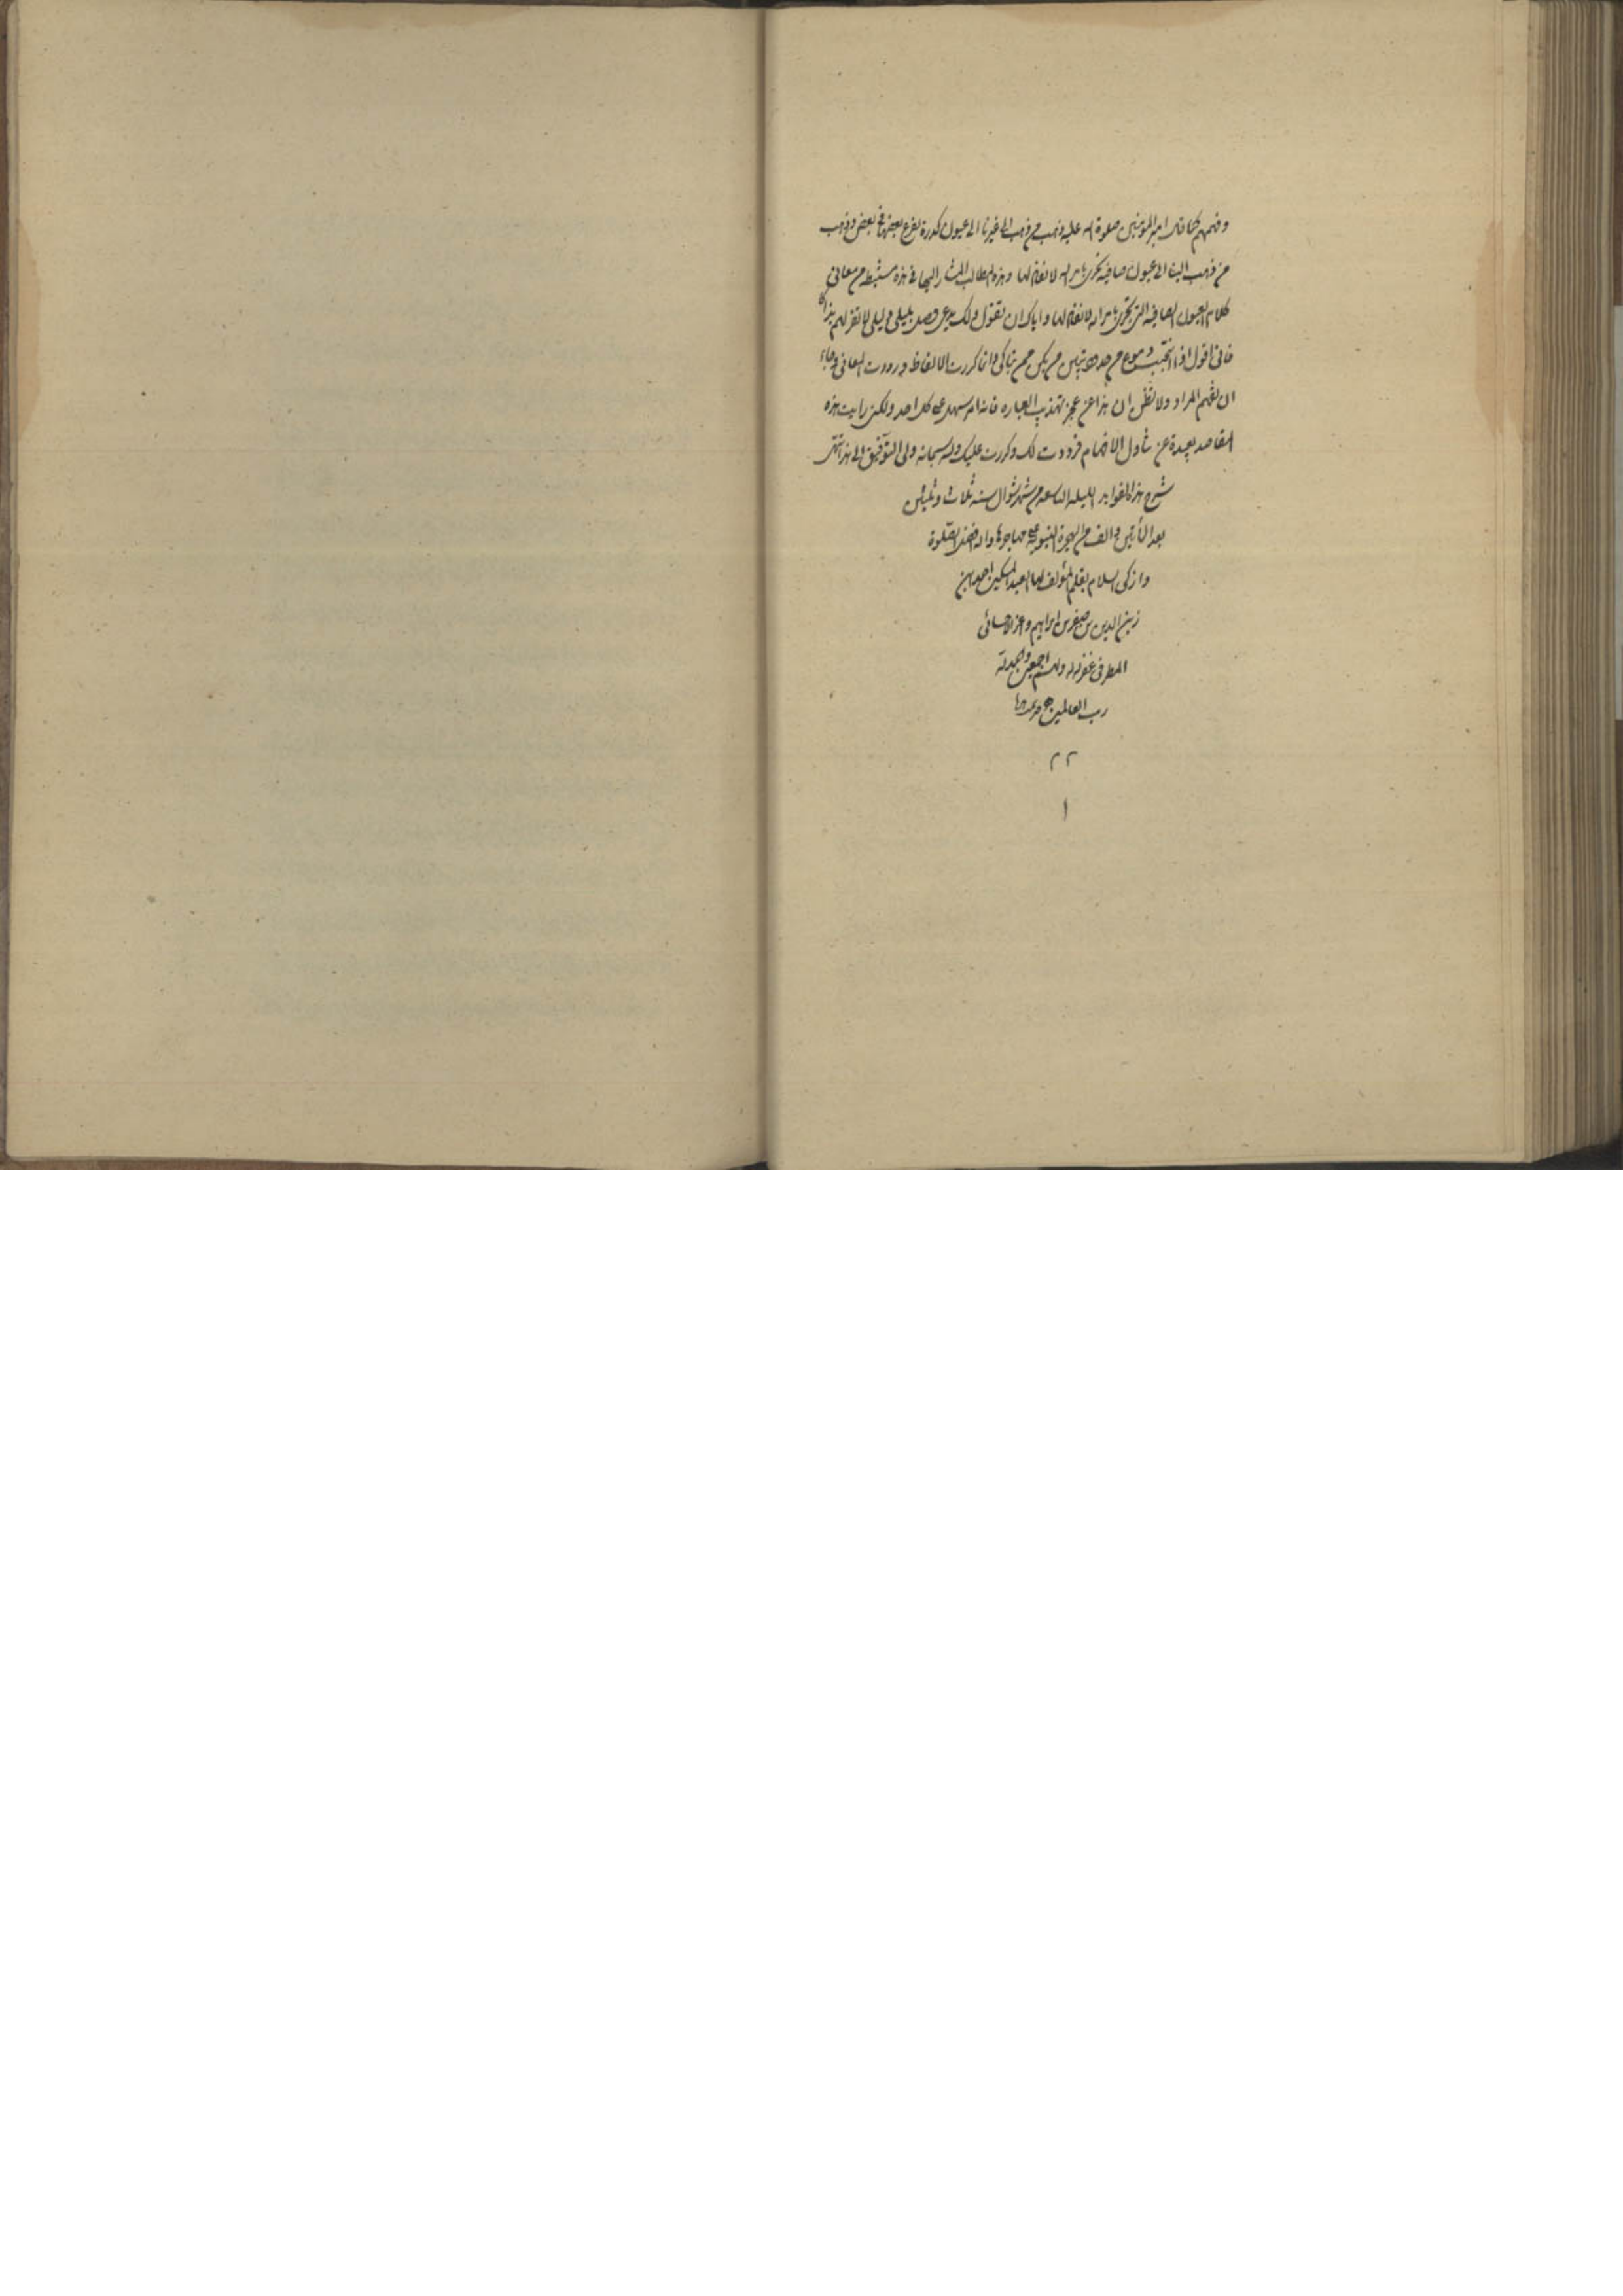 وفهمهم كما قال امير المؤمنين صلوة الله عليه ذهب من ذهب الى غيرنا الى عيون كدرة يفرغ بعضها في بعض وذهب
من ذهب الينا الى عيون صافية تجرى بامر الله لا نفاد لها وهذه المطالب المشار اليها في هذه مستنبطه من معانى
كلام العيون الصافية التى تجرى بامر الله لا نفاد لها واياك ان تقول وكل يدعى وصلا بليلى وليلى لا تقر لهم بذاكا
فانى اقول اذا انبجست دموع من خدود تبين من بكى ممن تباكى وانا كررت الالفاظ ورددت المعانى رجاء
ان تفهم المراد ولا تظن ان هذا عن عجز تهذيب العباره فانه امر سهل على كل احد ولكن رايت هذه
المقاصد بعيدة عن تناول الافهام فرددت لك وكررت عليك والله سبحانه ولى التوفيق الى هنا انتهى
شرح هذا الفوايد الليله التاسعه من شهر شوال سنه ثلاث وثلثين
بعد المأتين والف من الهجرة النبويه على مهاجرها واله افضل الصلوة
وازكى السلام بقلم المؤلف لها العبد المسكين احمد بن
زين الدين بن صقر بن ابراهيم داغر الاحسائى
المطرفى غفر الله له ولهم اجمعين والحمد لله
رب العالمين
٢٢
١